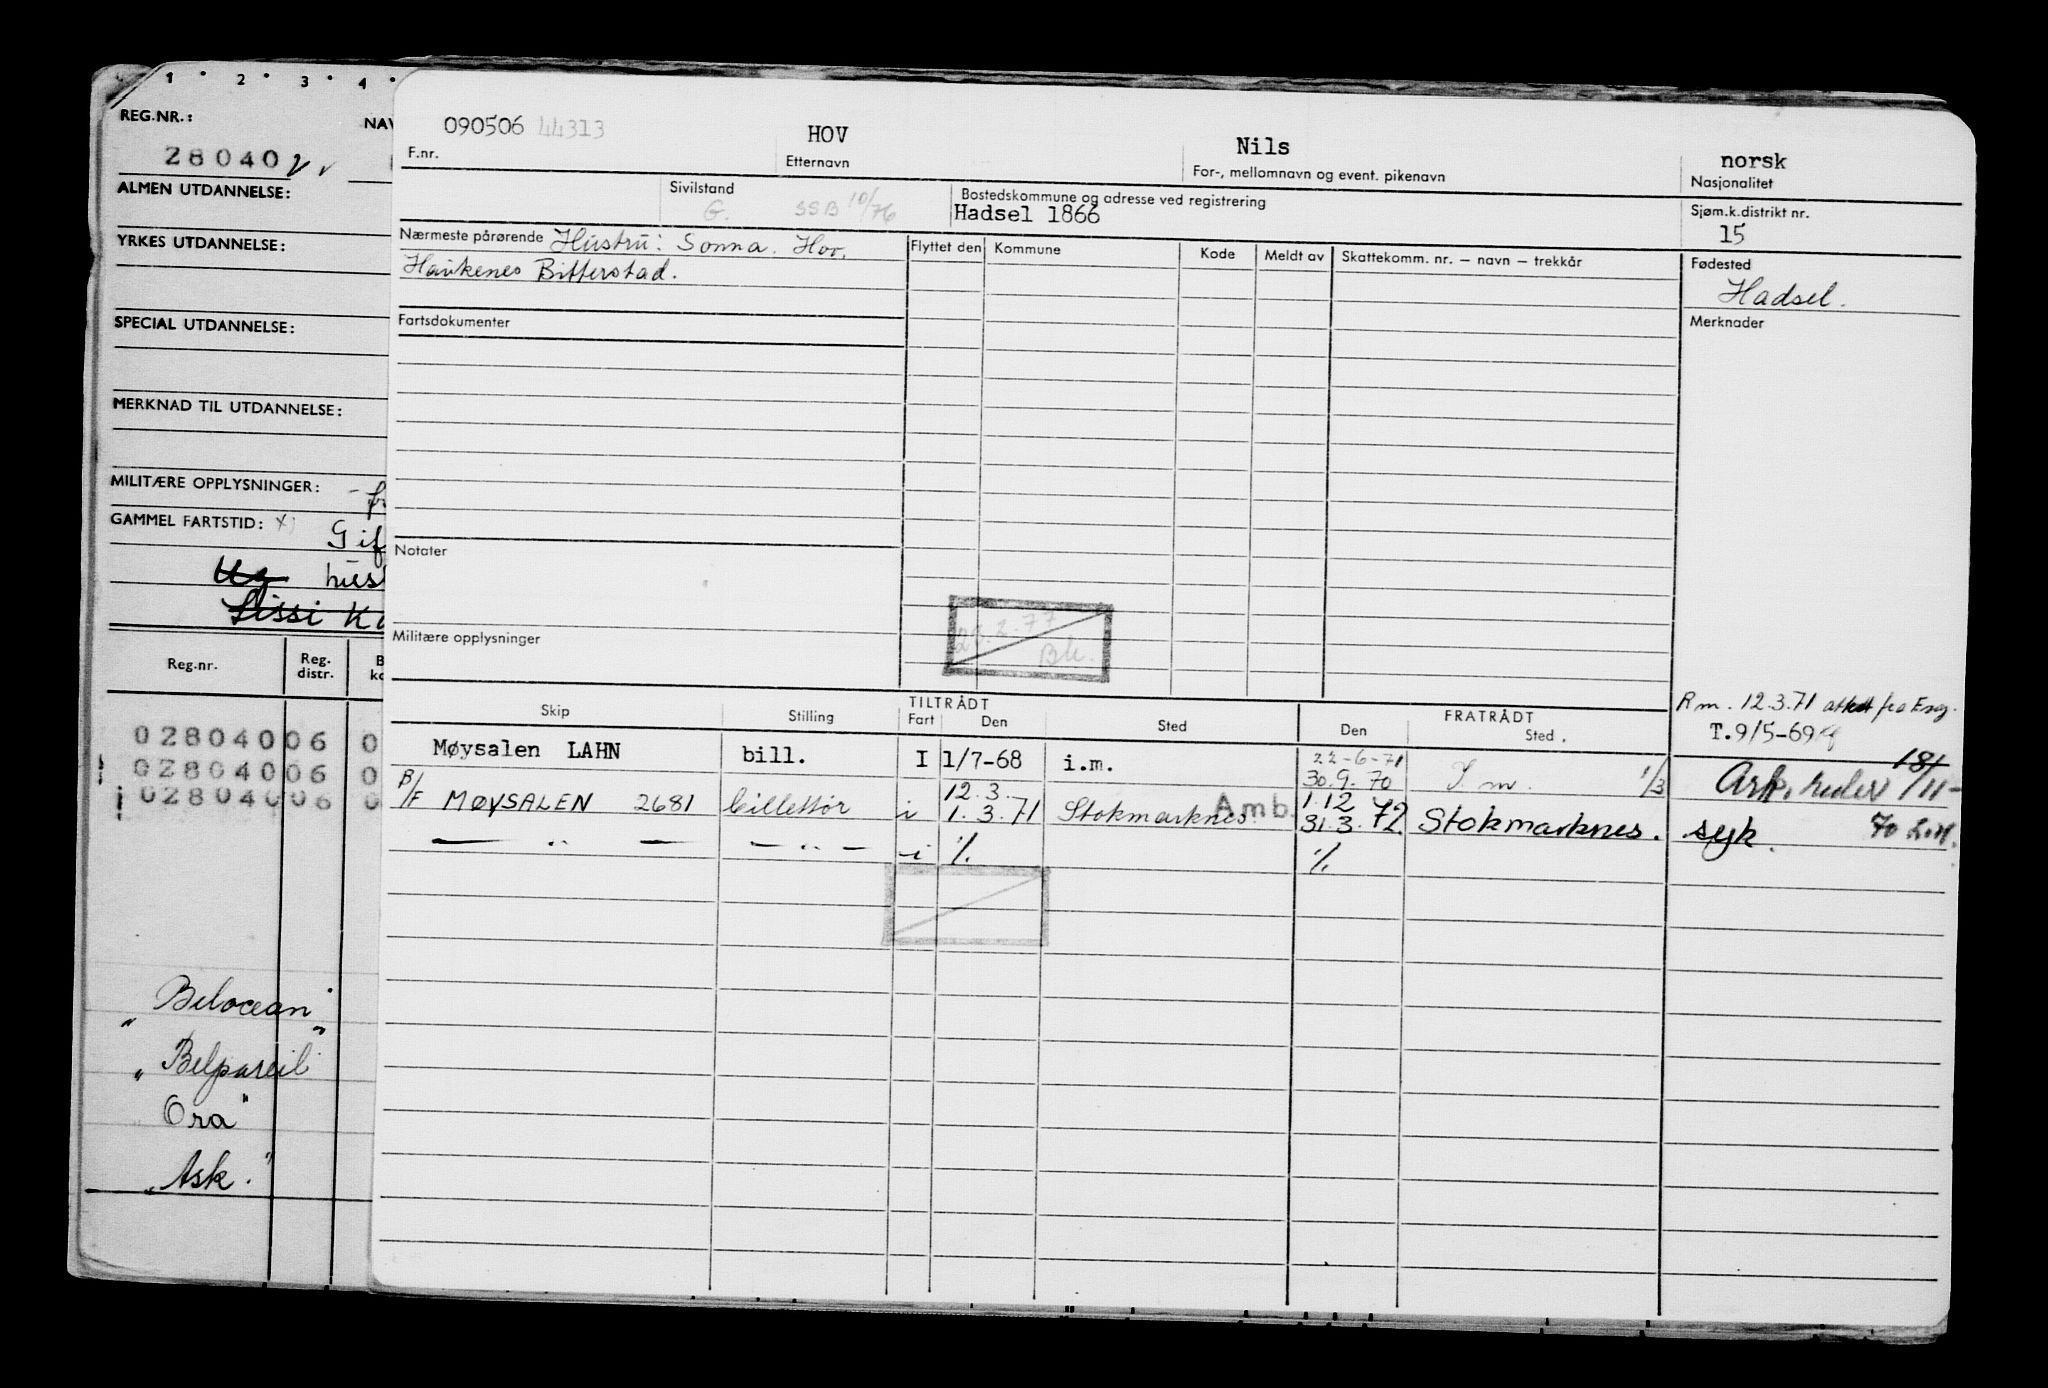 1 · 2 · 3 · 4 ·
REG.NR.:
NAV
28040
ALMEN UTDANNELSE:
YRKES UTDANNELSE:
SPECIAL UTDANNELSE:
MERKNAD TIL UTDANNELSE:
MILITÆRE OPPLYSNINGER:
GAMMEL FARTSTID: x)
Gif
hust
Lissi Ka
Reg.nr.
Reg. distr.
02804006 0
02804006 0
02804006 0
"Belocean"
"Belpareil"
Ora"
"Ask."
090506 44313
HOV
Nils
norsk
F.nr.
Etternavn
For-, mellomnavn og event. pikenavn
Nasjonalitet
Sivilstand
G. SSB 10/76
Bostedskommune og adresse ved registrering
Hadsel 1866
Sjøm.k.distrikt nr.
15
Nærmeste pårørende Hustru: Sonna. Hov.
Haukenes Bitterstad.
Flyttet den
Kommune
Kode
Meldt av
Skattekomm. nr. – navn – trekkår
Fødested
Hadsel.
Fartsdokumenter
Merknader
Notater
Militære opplysninger
23.2.77
Bk.
Skip
Stilling
TILTRÅDT
Fart
Den
Sted
FRATRÅDT
Den
Sted
Rm. 12.3.71
T.9/5-69
Møysalen LAHN bill. I 1/7-68 i.m. 22-6-71
30.9.70 I.m. 1/3
B/F MØYSALEN 2681 billettør i 12.3.
1.3.71 Stokmarknes. Amb. 1.12
31.3.72 Stokmarknes. syk.
— " — — " — i %. %.